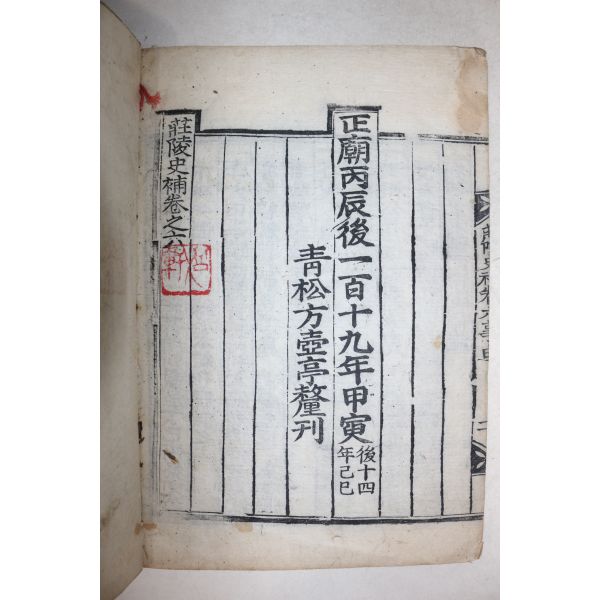 正廟丙辰後一百十九年甲寅
後十四
年己巳
靑松方壺亭釐刊
莊陵史補卷之六